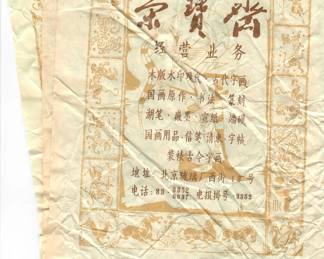 荣寶斋
经营业务
木版水印现代·古代字画
国画原作·书法·篆刻
湖笔·徽墨·宣纸·端砚
国画用品·信笺·请柬·字帖
装裱古今字画
地址：北京琉璃厂西街19号
电话：33.3352
电报挂号·3352